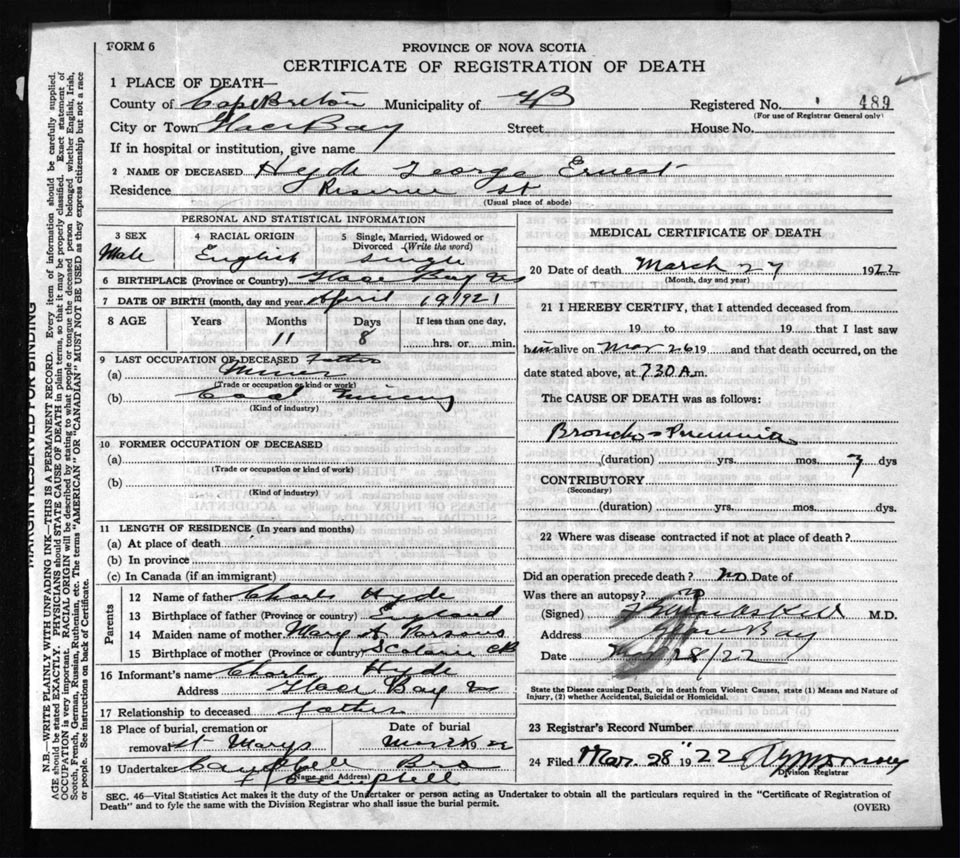 FORM 6
PROVINCE OF NOVA SCOTIA
CERTIFICATE OF REGISTRATION OF DEATH
1 PLACE OF DEATH—
County of Cape Breton Municipality of CB Registered No. 489
(For use of Registrar General only)
City or Town Glace Bay Street House No.
If in hospital or institution, give name
2 NAME OF DECEASED Hyde George Ernest
Residence Reserve St
(Usual place of abode)
PERSONAL AND STATISTICAL INFORMATION
3 SEX Male
4 RACIAL ORIGIN English
5 Single, Married, Widowed or Divorced (Write the word) Single
6 BIRTHPLACE (Province or Country) Glace Bay NS
7 DATE OF BIRTH (month, day and year) April 19 1921
8 AGE Years Months 11 Days 8 If less than one day, hrs. or min.
9 LAST OCCUPATION OF DECEASED Father
(a) Miner
(Trade or occupation or kind or work)
(b) Coal Mining
(Kind of industry)
10 FORMER OCCUPATION OF DECEASED
(a)
(Trade or occupation or kind of work)
(b)
(Kind of industry)
11 LENGTH OF RESIDENCE (In years and months)
(a) At place of death
(b) In province
(c) In Canada (if an immigrant)
Parents
12 Name of father Charles Hyde
13 Birthplace of father (Province or country) England
14 Maiden name of mother Mary A Parsons
15 Birthplace of mother (Province or country) CB
16 Informant's name Charles Hyde
Address Glace Bay NS
17 Relationship to deceased father
18 Place of burial, cremation or removal St Marys
Date of burial Mar 22
19 Undertaker Bro
(Name and Address)
MEDICAL CERTIFICATE OF DEATH
20 Date of death March 27 1922
(Month, day and year)
21 I HEREBY CERTIFY, that I attended deceased from
19 to 19 that I last saw
him alive on Mar 26 19 and that death occurred, on the
date stated above, at 7 30 A.m.
The CAUSE OF DEATH was as follows:
Broncho Pneumonia
(duration) yrs. mos. 3 dys
CONTRIBUTORY
(Secondary)
(duration) yrs. mos. dys.
22 Where was disease contracted if not at place of death?
Did an operation precede death? no Date of
Was there an autopsy? no
(Signed) M.D.
Address Glace Bay
Date 28/22
State the Disease causing Death, or in death from Violent Causes, state (1) Means and Nature of Injury, (2) whether Accidental, Suicidal or Homicidal.
23 Registrar's Record Number
24 Filed Mar. 28" 1922
Division Registrar
SEC. 46—Vital Statistics Act makes it the duty of the Undertaker or person acting as Undertaker to obtain all the particulars required in the "Certificate of Registration of
Death" and to fyle the same with the Division Registrar who shall issue the burial permit.
(OVER)
MARGIN RESERVED FOR BINDING
N.B.—WRITE PLAINLY WITH UNFADING INK—THIS IS A PERMANENT RECORD. Every item of information should be carefully supplied.
AGE should be stated EXACTLY. PHYSICIANS should STATE CAUSE OF DEATH in plain terms, so that it may be properly classified. Exact statement of
OCCUPATION is very important. RACIAL ORIGIN will be described by stating to what people or tongue the deceased person belonged whether English, Irish,
Scotch, French, German, Russian, Ruthenian, etc. The terms "AMERICAN" OR "CANADIAN" MUST NOT BE USED as they express citizenship but not a race
or people. See instructions on back of Certificate.